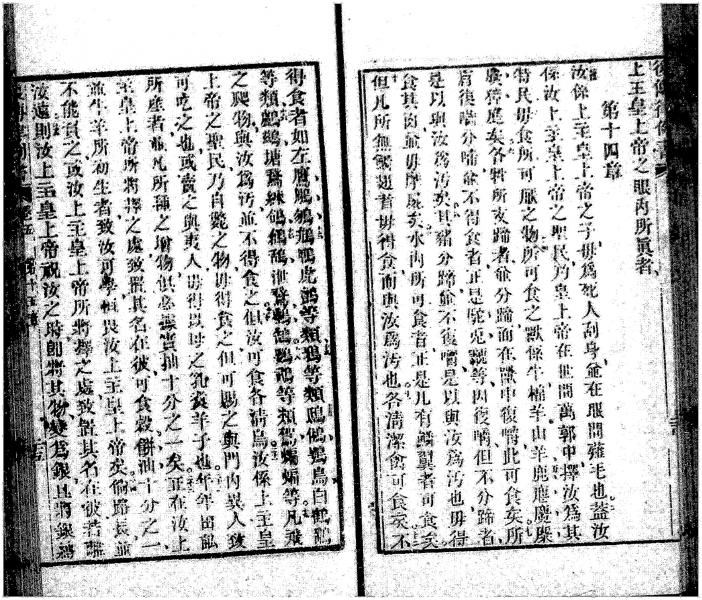 上主皇上帝之眼內所宜者
第十四章
汝係上主皇上帝之子毋為死人刮身並在眼間薙毛也蓋汝
係汝上主皇上帝之聖民乃皇上帝在世間萬郭中擇汝為其
特民毋食所可厭之物所可食之獸係牛綿羊山羊鹿
矣各將所夜蹄者並分蹄而在獸中復嚼此可食矣所
有復嚼分蹄並不得食者正是駝兎等因復嚼但不分蹄者
是以與汝為污矣其豬分蹄並不復嚼是以與汝為污也毋得
食其肉並毋摩屍矣水內所可食者正是凡有鱗翼者可食矣
但凡所無鱗翅者毋得食而與汝為污也各清潔禽可食矣不
得食者如左鷹等類鴉等類鳥白鶴
等類等類蝙蝠等凡飛
之爬物與汝為污並不得食之但汝可食各清鳥汝係上主皇
上帝之聖民乃自斃之物毋得食之但可賜之與門內異人致
可吃之也或賣之與夷人毋得以母之乳煑羊子也年年田畝
所產者並凡所種之增物俱必據實抽十分之一矣正在汝上
主皇上帝所將擇之處致置其名在彼可食穀餅油十分之一
並牛羊所初生者致汝可學恒畏汝上主皇上帝矣倘路長並
不能負之或汝上主皇上帝所將擇之處致置其名在彼若離
汝遠則汝上主皇上帝祝汝之時即將其物變為銀且將銀